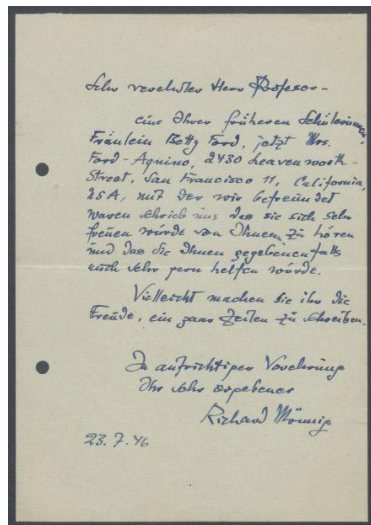 Sehr verehrter Herr Professor –
eine Ihrer früheren Schülerinnen,
Fräulein Betty Ford, jetzt Mrs.
Ford-Aquino, 2430 Leavenworth-
Street, San Francisco 11, California,
USA, mit der wir befreundet
waren schrieb uns dass sie sich sehr
freuen würde von Ihnen zu hören
und dass sie Ihnen gegebenenfalls
auch sehr gern helfen würde.
Vielleicht machen sie ihr die
Freude, ein paar Zeilen zu schreiben.
In aufrichtiger Verehrung
Ihr sehr ergebener
Richard Mönnig
23.7.46